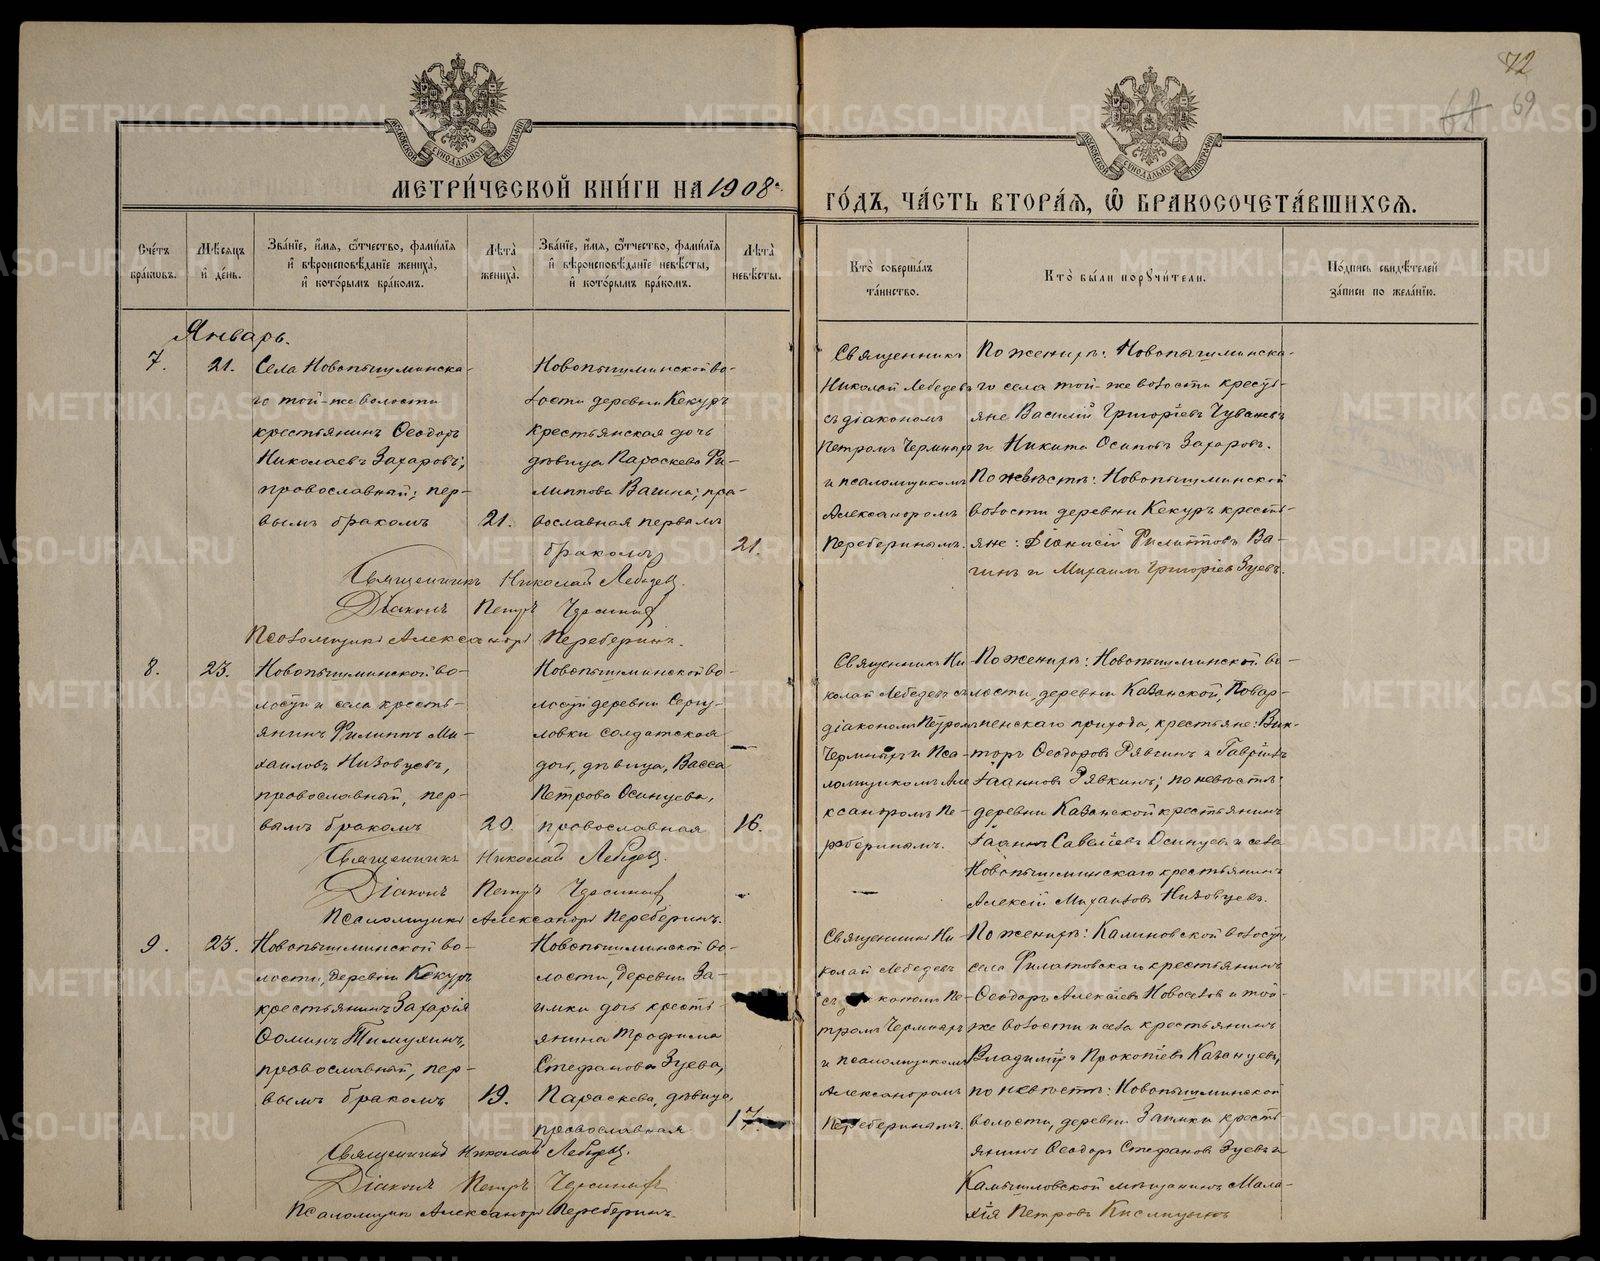 72
68 69
МЕТРИ́ЧЕСКОЙ КНИ́ГИ НА 1908
ГО́ДЪ, ЧА́СТЬ ВТОРА́Ѧ, Ѽ БРАКОСОЧЕТА́ВШИХСѦ.
Сче́тъ бра́ковъ.
Мѣ́сяцъ и́ де́нь.
Зва́нїе, и́мя, ѻ́тчество, фами́лїя и́ вѣроисповѣ́данїе жениха̀, и́ кото́рымъ бра́комъ.
Лѣта̀ жениха̀.
Зва́нїе, и́мя, ѻ́тчество, фами́лїя и́ вѣроисповѣ́данїе невѣ́сты, и́ кото́рымъ бра́комъ.
Лѣта̀ невѣ́сты.
Кто̀ соверша́лъ та́инство.
Кто̀ бы́ли порꙋчи́тели.
По́дпись свидѣ́телей за́писи по жела́нїю.
Январь.
7.
21.
Села Новопышминска-
го той-же волости
крестьянинъ Ѳеодоръ
Николаевъ Захаровъ;
православный; пер-
вымъ бракомъ
21.
Новопышминской во-
лости деревни Кекуръ
крестьянская дочь
дѣвица Параскева Фи-
липпова Вагина; пра-
вославная первымъ
бракомъ
21.
Священникъ
Николай Лебедевъ
съ діакономъ
Петромъ
и псаломщикомъ
Александромъ
Переберинымъ.
По женихѣ: Новопышминска-
го села той-же волости кресть-
яне Василій Григоріевъ Чувашевъ
и Никита Осиповъ Захаровъ.
По невѣстѣ: Новопышминской
волости деревни Кекуръ кресть-
яне: Діонисій Филипповъ Ва-
гинъ и Михаилъ Григоріевъ Зуевъ.
Священникъ Николай Лебедевъ.
Діаконъ Петръ
Псаломщикъ Александръ Переберинъ.
8.
23.
Новопышминской во-
лости и села кресть-
янинъ Филиппъ Ми-
хаиловъ Низовцевъ,
православный, пер-
вымъ бракомъ
20.
Новопышминской во-
лости деревни Сергу-
ловки солдатская
дочь, дѣвица, Васса
Петрова Осинцева,
православная
16.
Священникъ Ни-
колай Лебедевъ съ
діакономъ Петромъ
и Пса-
ломщикомъ Але-
ксандромъ Пе-
реберинымъ.
По женихѣ: Новопышминской во-
лости, деревни Казанской,
пенскаго прихода, крестьяне: Вик-
торъ Ѳеодоровъ Рявкинъ и Гавріилъ
Іоанновъ Рявкинъ; по невѣстѣ:
деревни Казанской крестьянинъ
Іоаннъ Савеліевъ Осинцевъ и села
Новопышминскаго крестьянинъ
Алексій Михаиловъ Низовцевъ.
Священникъ Николай Лебедевъ.
Діаконъ Петръ
Псаломщикъ Александръ Переберинъ.
9.
23.
Новопышминской во-
лости, деревни Кекуръ
крестьянинъ Захарія
Ѳоминъ Тимухинъ,
православный, пер-
вымъ бракомъ
19.
Новопышминской во-
лости, деревни За-
имки дочь кресть-
янина Трофима
Стефанова Зуева,
Параскева, дѣвица,
православная
17.
Священникъ Ни-
колай Лебедевъ
съ діакономъ Пе-
тромъ
и псаломщикомъ
Александромъ
Переберинымъ.
По женихѣ: Калиновской волости,
села Филатовскаго крестьянинъ
Ѳеодоръ Алексіевъ Новоселовъ и той-
же волости и села крестьянинъ
Владиміръ Прокопіевъ Казанцевъ,
по невѣстѣ: Новопышминской
волости, деревни Заимки кресть-
янинъ Ѳеодоръ Стефановъ Зуевъ и
Камышловской мѣщанинъ Мала-
хія Петровъ Кислицынъ
Священникъ Николай Лебедевъ.
Діаконъ Петръ
Псаломщикъ Александръ Переберинъ.
METRIKI.GASO-URAL.RU